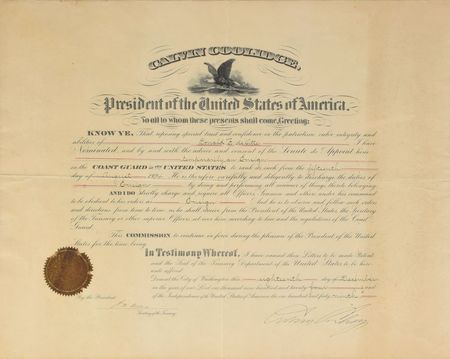 CALVIN COOLIDGE,
President of the United States of America.
To all to whom these presents shall come, Greeting:
KNOW YE, That reposing special trust and confidence in the patriotism, valor, integrity and
abilities of I have
Nominated, and by and with the advice and consent of the Senate do Appoint him
Temporarily an Ensign
in the COAST GUARD of the UNITED STATES to rank as such from the fifteenth
day of August 1924. He is therefore carefully and diligently to discharge the duties of
Ensign by doing and performing all manner of things thereto belonging
AND I DO strictly charge and require all Officers, Seamen and others under his command
to be obedient to his orders as Ensign And he is to observe and follow such orders
and directions from time to time as he shall receive from the President of the United States, the Secretary
of the Treasury or other superior Officer set over him according to law and the regulations of the Coast
Guard.
This COMMISSION to continue in force during the pleasure of the President of the United
States for the time being.
In Testimony Whereof, I have caused these Letters to be made Patent
and the Seal of the Treasury Department of the United States to be here
unto affixed.
Done at the City of Washington this eighteenth day of December
in the year of our Lord one thousand nine hundred and twenty four and
of the Independence of the United States of America the one hundred and forty ninth
By the President
Secretary of the Treasury